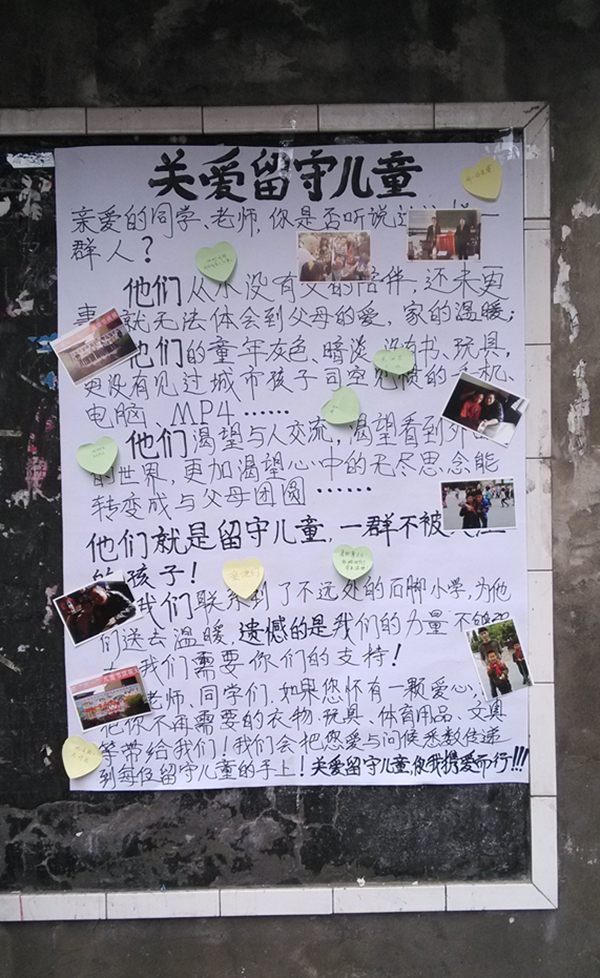 关爱留守儿童
亲爱的同学、老师,你是否听说过
群人?
他们从小没有父的陪伴,还未更
事 就无法体会到父母的爱,家的温暖;
他们的童年灰色、暗淡 没有书、玩具,
更没有见过城市孩子司空见惯的手机、
电脑 MP4……
他们渴望与人交流,渴望看到外
的世界,更加渴望心中的无尽思念能
转变成与父母团圆……
他们就是留守儿童,一群不被
的孩子!
我们联系到了不远处的石脚小学,为他
们送去温暖,遗憾的是我们的力量不够
我们需要你们的支持!
老师、同学们.如果您怀有一颗爱心,
把你不再需要的衣物.玩具、体育用品、文具
等带给我们!我们会把您爱与问候悉数传递
到每位留守儿童的手上!关爱留守儿童,你我携爱而行!!!